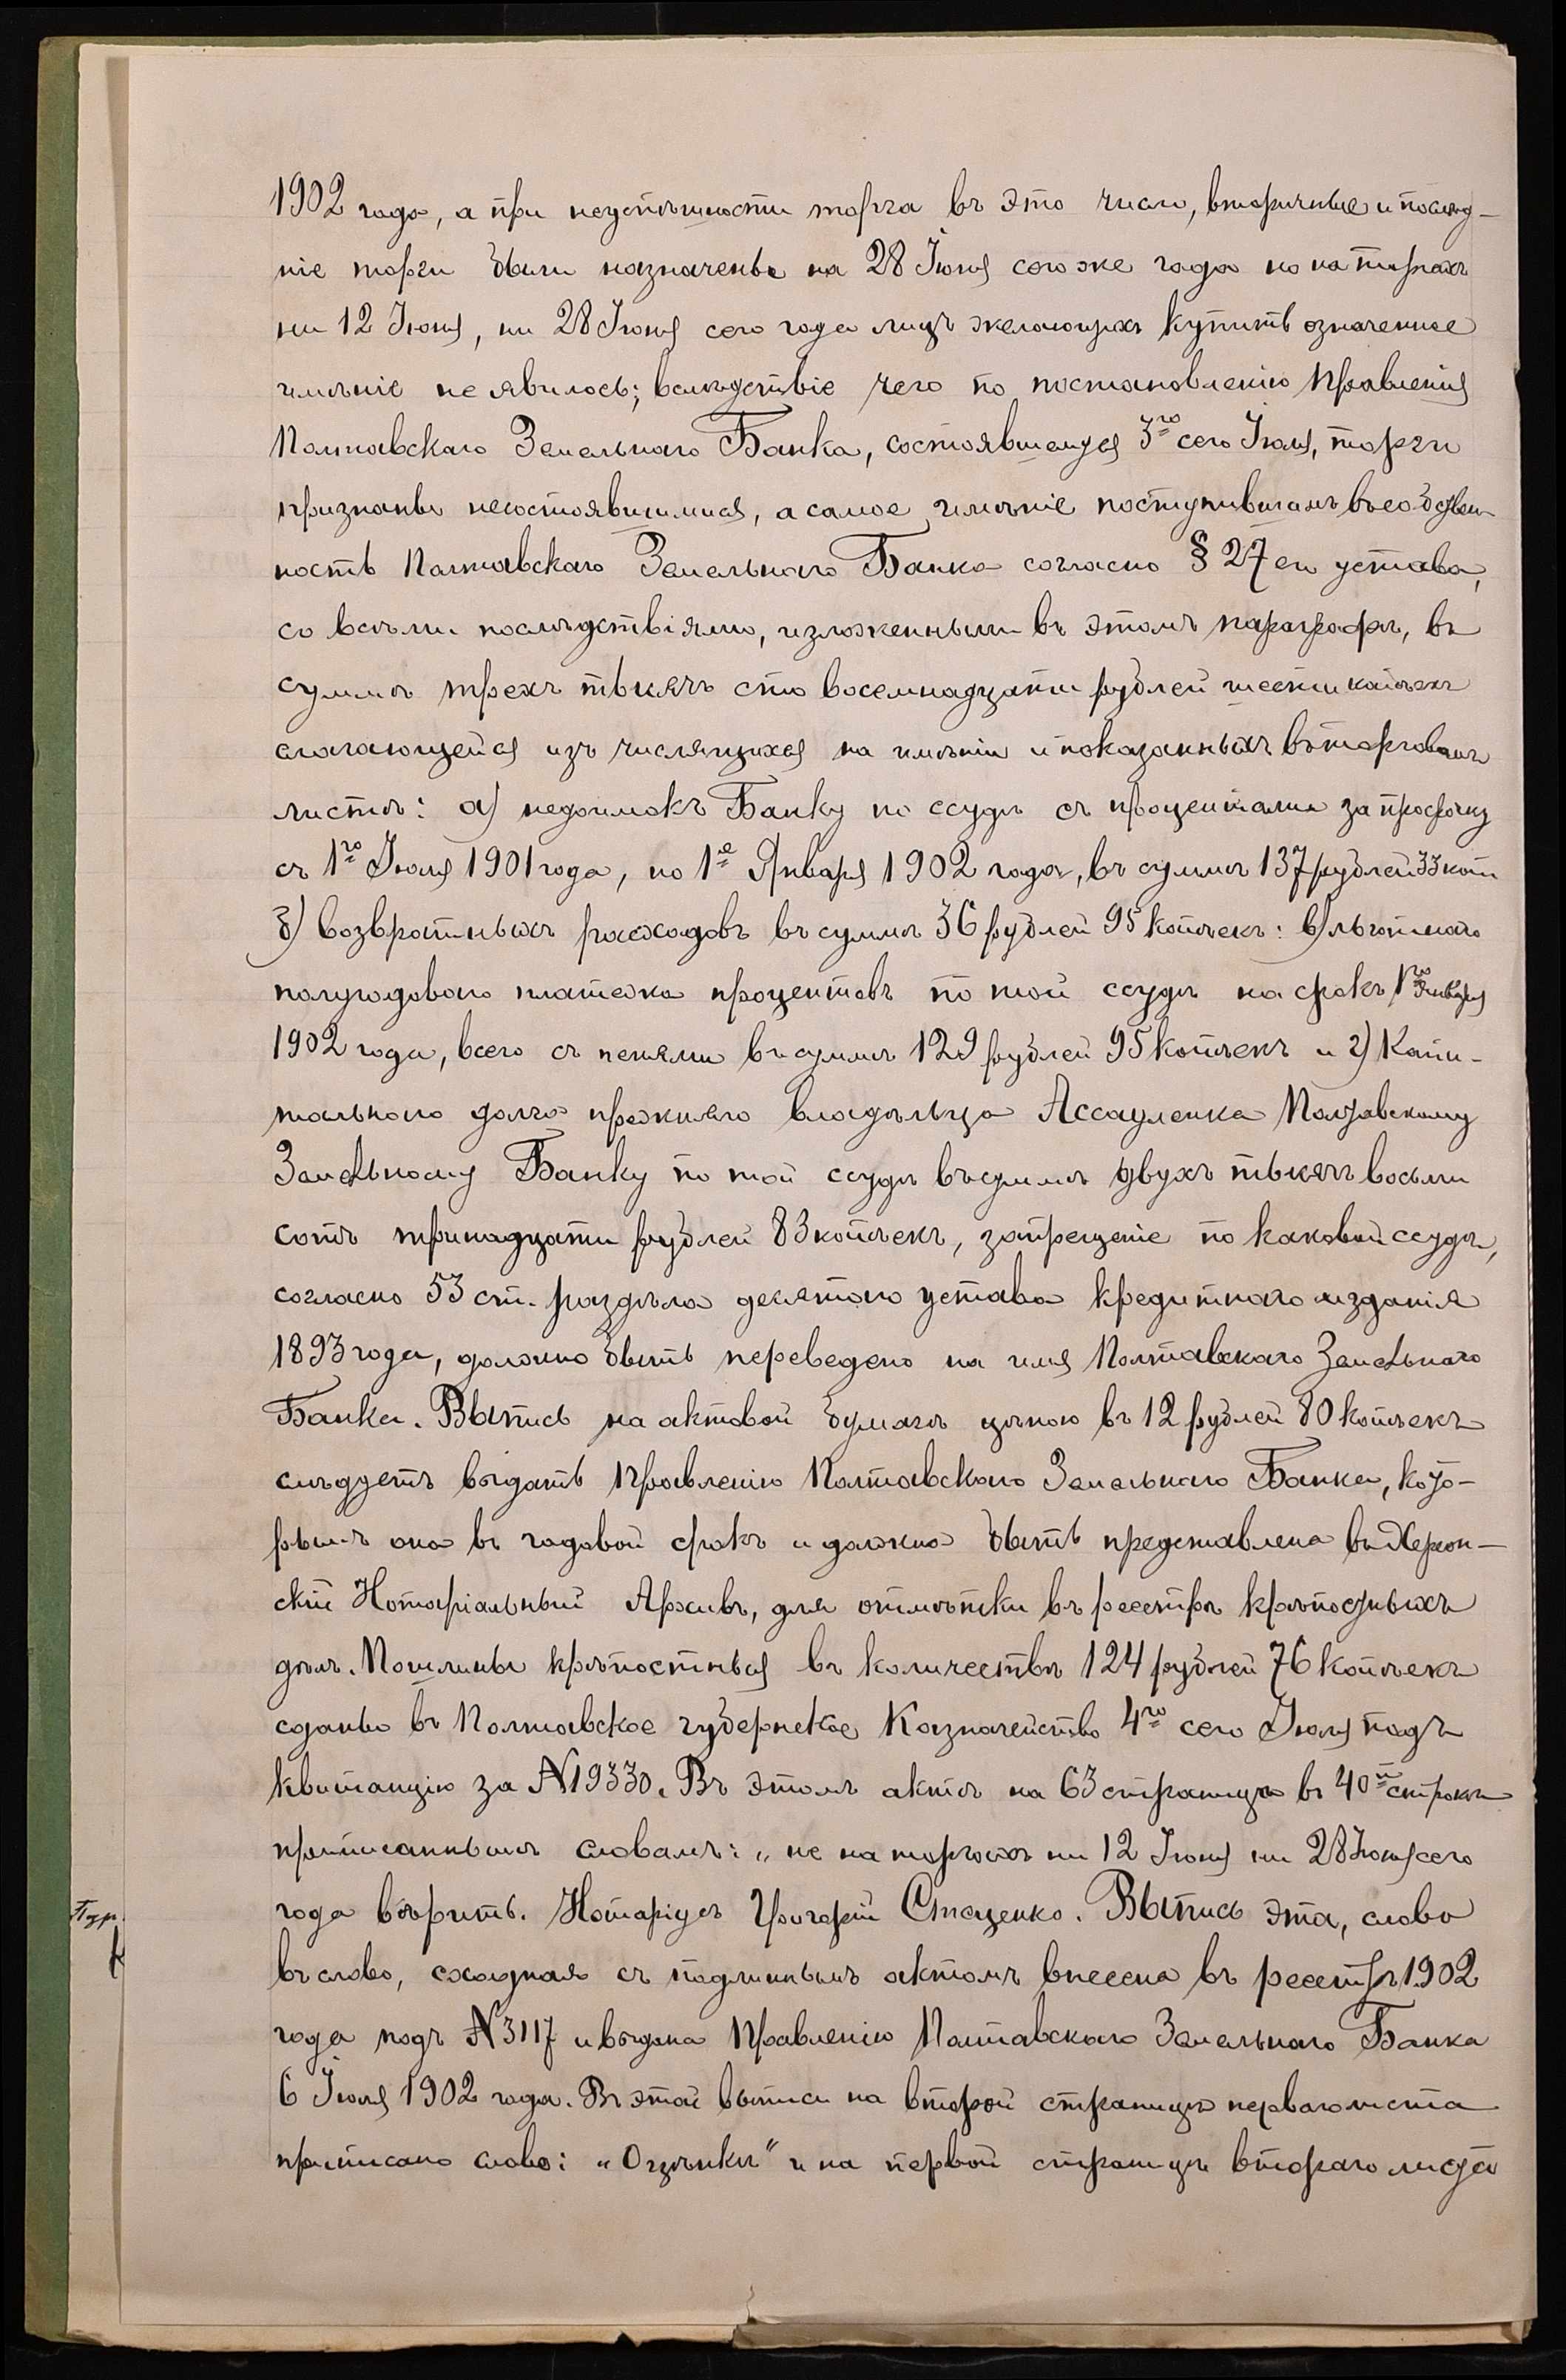 1902 года, а при неуспѣшности торга въ это число, вторичные и послѣд-
ніе торги были назначены на 28 Іюня сего же года но на торгахъ
ни 12 Іюня, ни 28 Іюня сего года лицъ желающихъ купить означенное
имѣніе не явилось; вслѣдствіе чего по постановленію Правленія
Полтавскаго Земельнаго Банка, состоявшемуся 3го сего Іюля, торги
признаны несостоявшимися, а самое имѣніе поступившимъ въ собствен
ность Полтавскаго Земельнаго Банка согласно § 27 его устава,
со всѣми послѣдствіями, изложенными въ этомъ параграфѣ, въ
суммѣ трехъ тысячъ сто восемнадцати рублей шести копѣекъ
слагающейся изъ числящихся на имѣніи и показанныхъ въ торговомъ
листѣ: а) недоимокъ Банку по ссудѣ съ процентами за просрочку
съ 1го Іюля 1901 года, по 1е Января 1902 года, въ суммѣ 137 рублей 33 коп
б) возвратныхъ расходовъ въ суммѣ 36 рублей 95 копѣекъ: в) льготнаго
полугодоваго платежа процентовъ по той ссудѣ на срокъ 1го Января
1902 года, всего съ пенями въ суммѣ 129 рублей 95 копѣекъ и г) Капи-
тальнаго долга прежняго владѣльца Ассауленка Полтавскому
Земельному Банку по той ссудѣ въ суммѣ двухъ тысячъ восьми
сотъ тринадцати рублей 83 копѣекъ, запрещеніе по каковой ссудѣ,
согласно 53 ст. раздѣла десятаго устава кредитнаго изданія
1893 года, должно быть переведено на имя Полтавскаго Земельнаго
Банка. Выпись на актовой бумагѣ цѣною въ 12 рублей 80 копѣекъ
слѣдуетъ выдать Правленію Полтавскаго Земельнаго Банка, кото-
рымъ она въ годовой срокъ и должна быть представлена въ Херсон-
скій Нотаріальный Архивъ, для отмѣтки въ реестрѣ крѣпостныхъ
дѣлъ. Пошлины крѣпостныя въ количествѣ 124 рублей 76 копѣекъ
сданы въ Полтавское губернское Казначейство 4го сего Іюля подъ
квитанцію за №19330. Въ этомъ актѣ на 63 страницѣ въ 40й строкѣ
приписаннымъ словамъ: „не на торгахъ ни 12 Іюня ни 28 Іюня сего
года вѣрить. Нотаріусъ Григорій Стаценко. Выпись эта, слово
въ слово, сходная съ подлиннымъ актомъ внесена въ реестръ 1902
года подъ №3117 и выдана Правленію Полтавскаго Земельнаго Банка
6 Іюля 1902 года. Въ этой выписи на второй страницѣ перваго листа
приписано слово: „Оцѣнки" и на первой страницѣ втораго листа